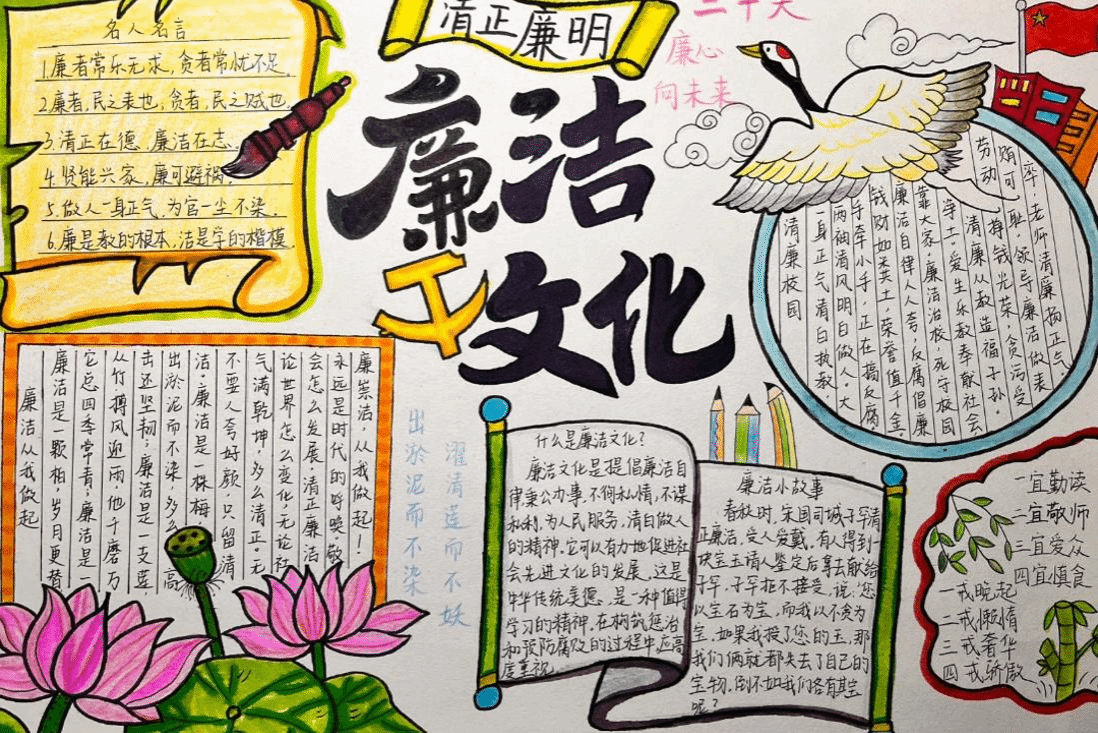 名人名言
1.廉者常乐无求,贪者常忧不足。
2.廉者,民之表也,贪者,民之贼也
3.清正在德,廉洁在志。
4.贤能兴家,廉可避祸。
5.做人一身正气,为官一尘不染。
6.廉是教的根本,洁是学的楷模
清正廉明
廉洁
文化
二十大
廉心
向未来
老师清廉扬正气
耻,领导廉洁做表
挣钱光荣,贪污受
贿可
劳动
清廉从教造福子孙。
净土。爱生乐教奉献社会
靠大家,廉洁治校,死守校园
廉洁自律人人夸,反腐倡廉
钱财如粪土,荣誉值千金,
手牵小手,正在搞反腐,
两袖清风明日做人。大
一身正气清白执教
清廉校园
廉洁从我做起
廉洁是一颗柏,岁月更替
它总四季常青;廉洁是一
从竹,搏风迎雨他千磨万
击还坚韧;廉洁是一支莲
出淤泥而不染,多么高
洁。廉洁是一株梅,
不要人夸好颜,只留清
气满乾坤,多么清正。无
论世界怎么变化,无论社
会怎么发展,清正廉洁
永远是时代的呼唤。敬
廉崇洁,从我做起!
出淤泥而不染
濯清莲而不妖
什么是廉洁文化?
廉洁文化是提倡廉洁自
律秉公办事,不徇私情,不谋
私利,为人民服务,清白做人
的精神。它可以有力地促进社
会先进文化的发展。这是
中华传统美德,是一种值得
学习的精神,在构筑惩治
和预防腐败的过程中应高
度重视
廉洁小故事
春秋时,宋国司城子罕清
正廉洁,受人爱戴。有人得到一
块宝玉请人鉴定后拿去献给
子罕,子罕拒不接受,说:您
以宝石为宝,而我以不贪为
宝。如果我接了您的玉,那
我们俩就都失去了自己的
宝物。倒不如我们各有其宝
呢?
一宜勤读
二宜敬师
三宜爱众
四宜慎食
一戒晚起
二戒懒惰
三戒奢华
四戒骄傲